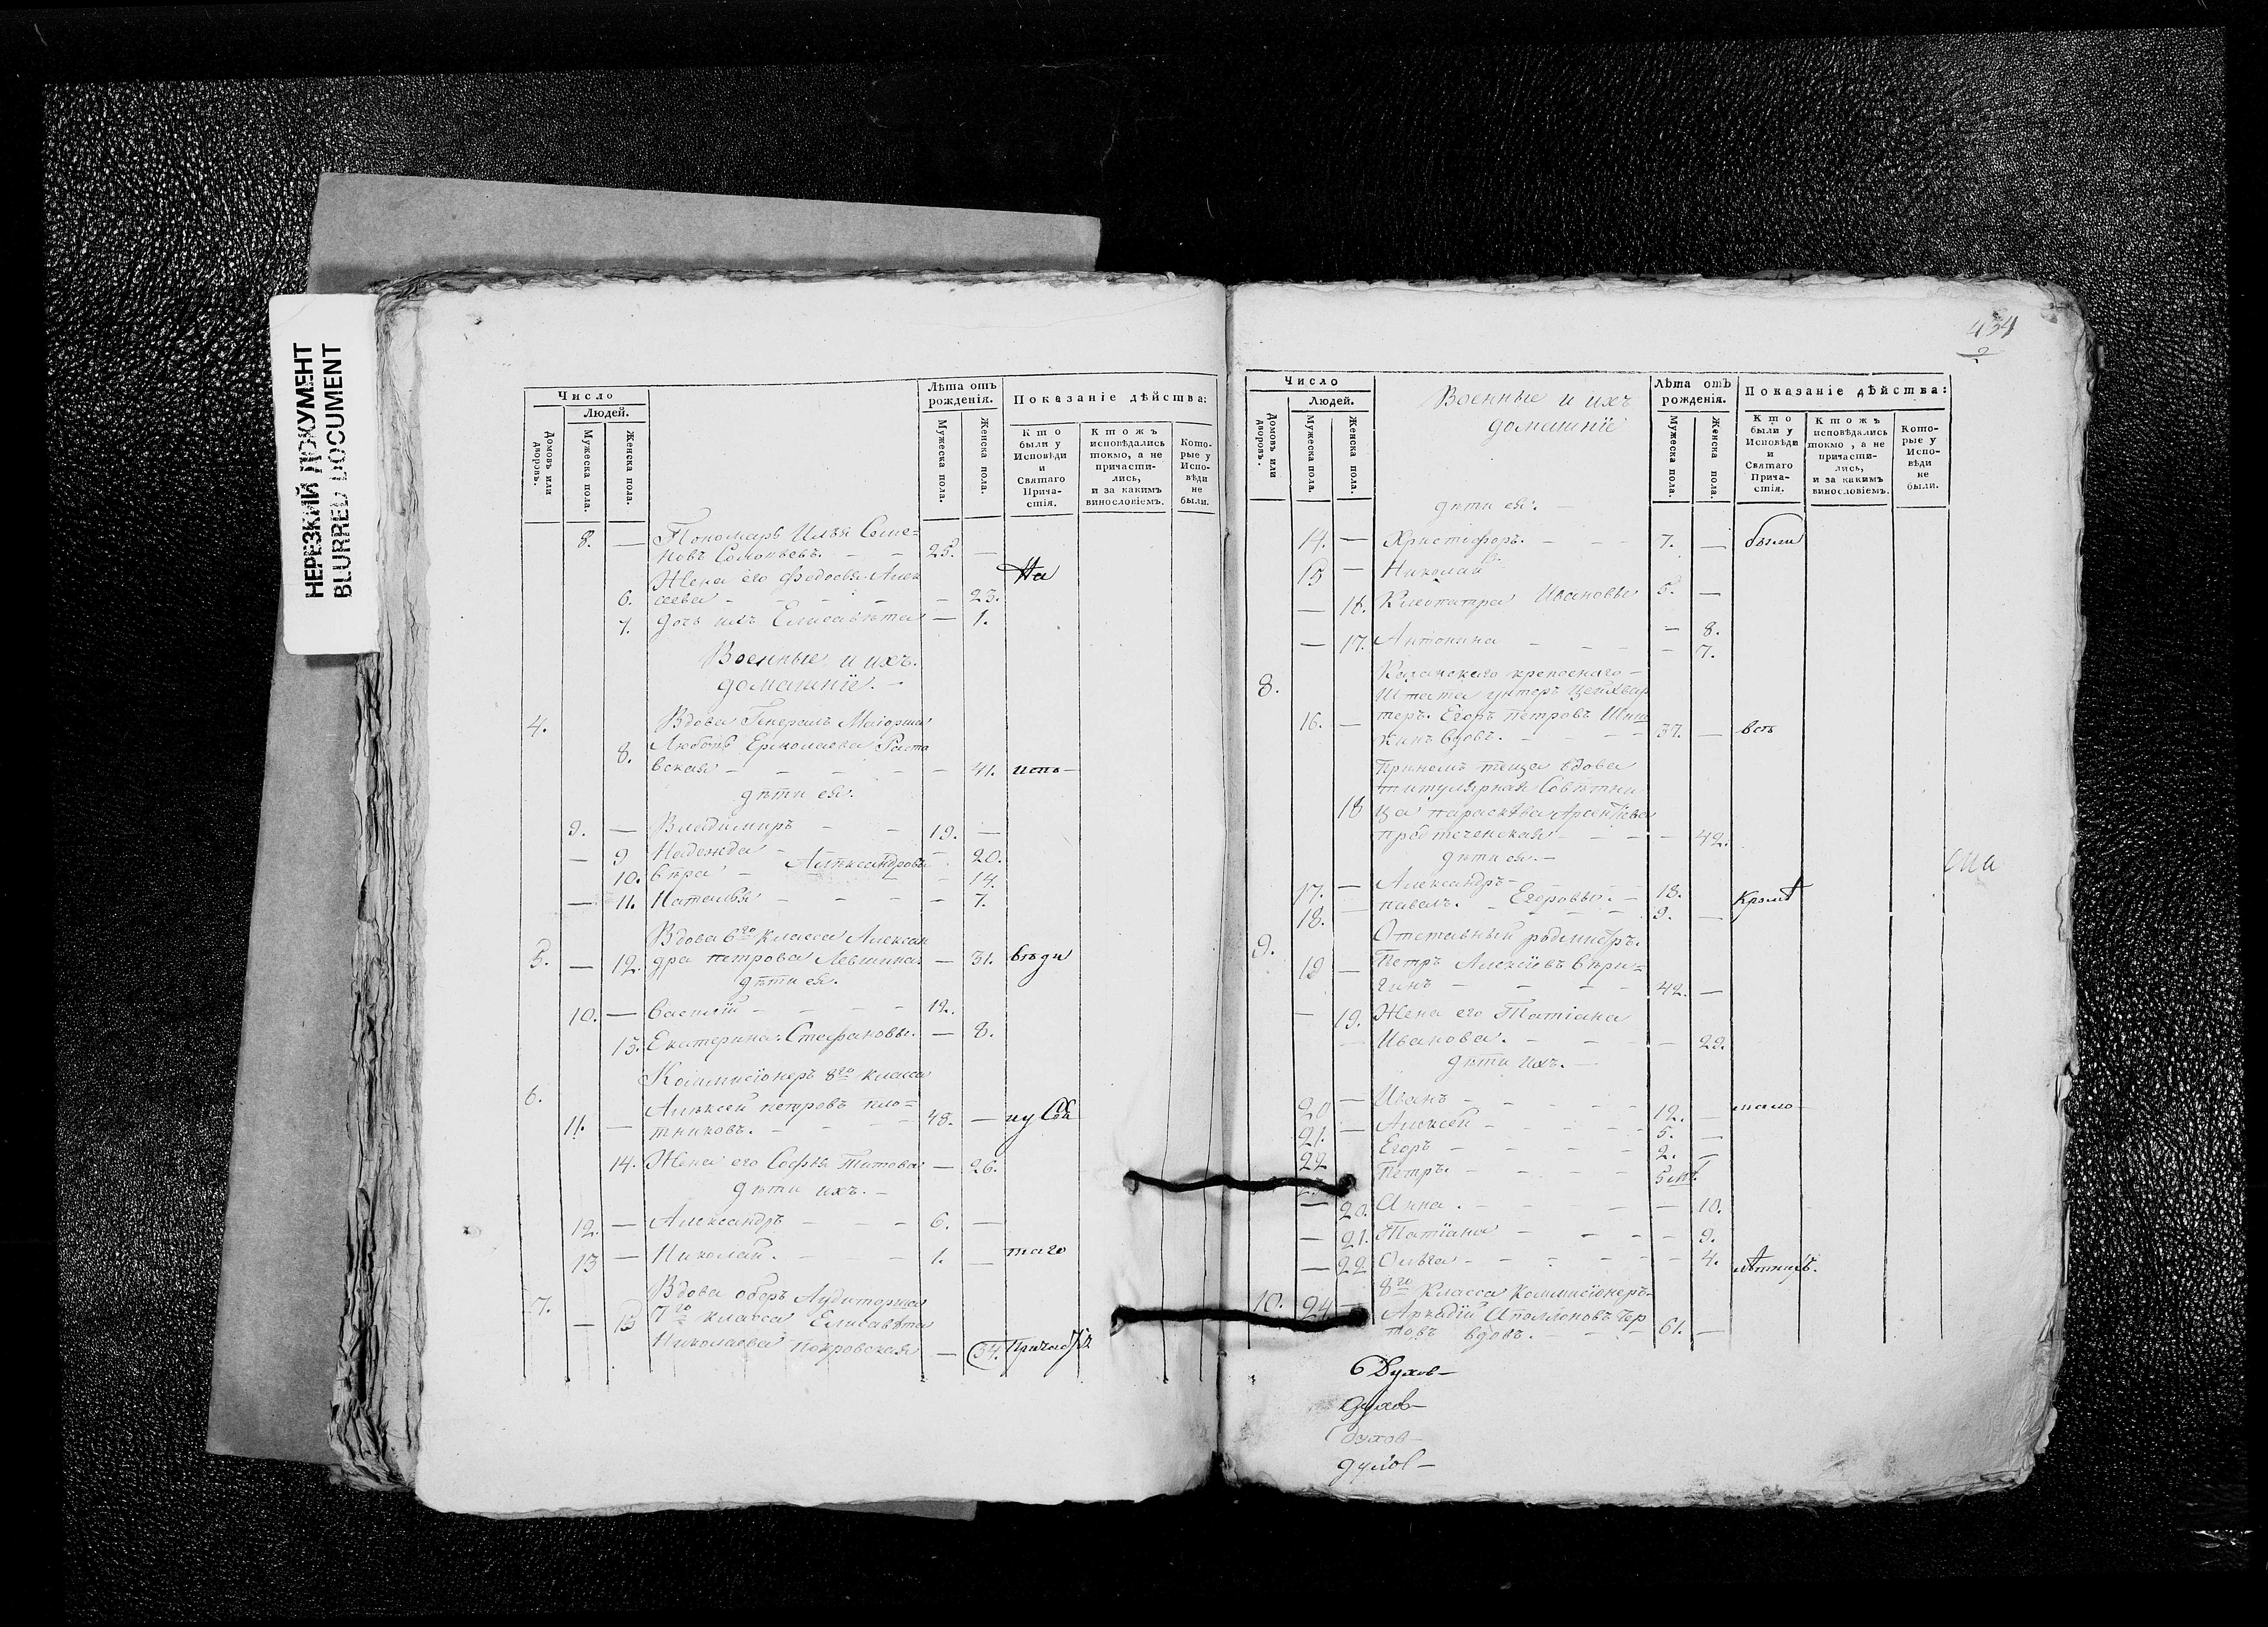 НЕРЕЗКИЙ ДОКУМЕНТ
BLURRED DOCUMENT
Число
Людей.
Домовъ или дворовъ.
Мужеска пола.
Женска пола.
Лѣта отъ рожденія.
Мужеска пола.
Женска пола.
Показаніе дѣйства:
Кто были у Исповѣди и Святаго Причастія.
Ктожъ исповѣдались токмо, а не причастились, и за какимъ винословіемъ.
Которые у Исповѣди не были.
8. — Пономарь Илья Семе=
новъ Соловьевъ. — — 25. —
Жена его Федосья Алек На
6. сеева — — — — 23.
7. дочь ихъ Елисавета — 1.
Военные и ихъ
домашніе. —
4. Вдова Генералъ Маіорша
8. Любовь Ермолаева
вская — — — — — 41. испо—
дѣти ея.
9. — Владимиръ — — 19. —
— 9 Надежда — — 20.
10. Вѣра — Александровы — 14.
— 11. Наталья — — — — 7.
Вдова 6го класса Алексан
5. — 12. дра петрова Левшина — 31. вѣди
дѣти ея.
10. — Василій — — — — 12.
13. Екатерина. Стефановы. — 8.
6. Коммисіонеръ 8го класса
Алексей петровъ пло=
11. — тниковъ. — — — 48. — и у Свя
14. Жена его Софья Титова — 26.
дѣти ихъ. —
12. — Александръ — — — 6. —
13 — Николай. — — — 1. — таго
7. Вдова оберъ Аудиторша
— 15 7го класса Елисавета
Николаева Покровская — 34. Причастія
434
Число
Людей.
Домовъ или дворовъ.
Мужеска пола.
Женска пола.
Военные и ихъ
домашніе
Лѣта отъ рожденія.
Мужеска пола.
Женска пола.
Показаніе дѣйства:
Кто были у Исповѣди и Святаго Причастія.
Ктожъ исповѣдались токмо, а не причастились, и за какимъ винословіемъ.
Которые у Исповѣди не были.
дѣти ея. —
14. — Христіфоръ. — — — 7. — были
15 — Николай
— 16. Клеопатра Ивановы 5. —
— 8.
— 17. Антонина — — — — 7.
8. Казанскаго крепоснаго —
Штата унтеръ цейхвар
16. — теръ. Егоръ Петровъ
кинъ вдовъ. — — — 37. — всѣ
При немъ теща вдова
титулярная Совѣтни
18 ца параскѣва Арентіева
протеченская — — — — 42.
дѣти ея. —
17. — Александръ — 18. Кромѣ
18. — павелъ. — Егоровы. — 9. —
9. Отставный ротмистръ.
19 — Петръ Алексіевъ Вѣри=
гинъ — — — — 42. —
— 19. Жена его Татіана
— Иванова. — — — — 29.
дѣти ихъ. —
20 — Иванъ — — — — 12. — мало
21. — Алексей — — — — 5. —
22 Егоръ — — — — 2. —
23 Петръ. — — — — 5 м.
— 20. Анна. — — — — — 10.
— 21. Татіана — — — — 9.
— 22 Ольга — — — — — 4. лѣтныхъ.
8го Класса Коммисіонеръ.
10. 24 — Аркадій Аполлоновъ Чер
товъ вдовъ. — — — 61. —
6 Духов—
духов—
духов—